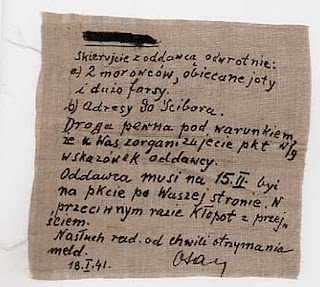 Skierujcie z oddawcą odwrotnie:
a) 2 morowców, obiecane joty
i dużo forsy.
b) adresy do Ścibora.
Droga pewna pod warunkiem,
że u Was zorganizujecie pkt w/g
wskazówek oddawcy.
Oddawca musi na 15.II być
na pkcie po Waszej stronie. W
przeciwnym razie kłopot z przej„
ściem.
Nasłuch rad. od chwili otrzymania
meld.
18.I.41.